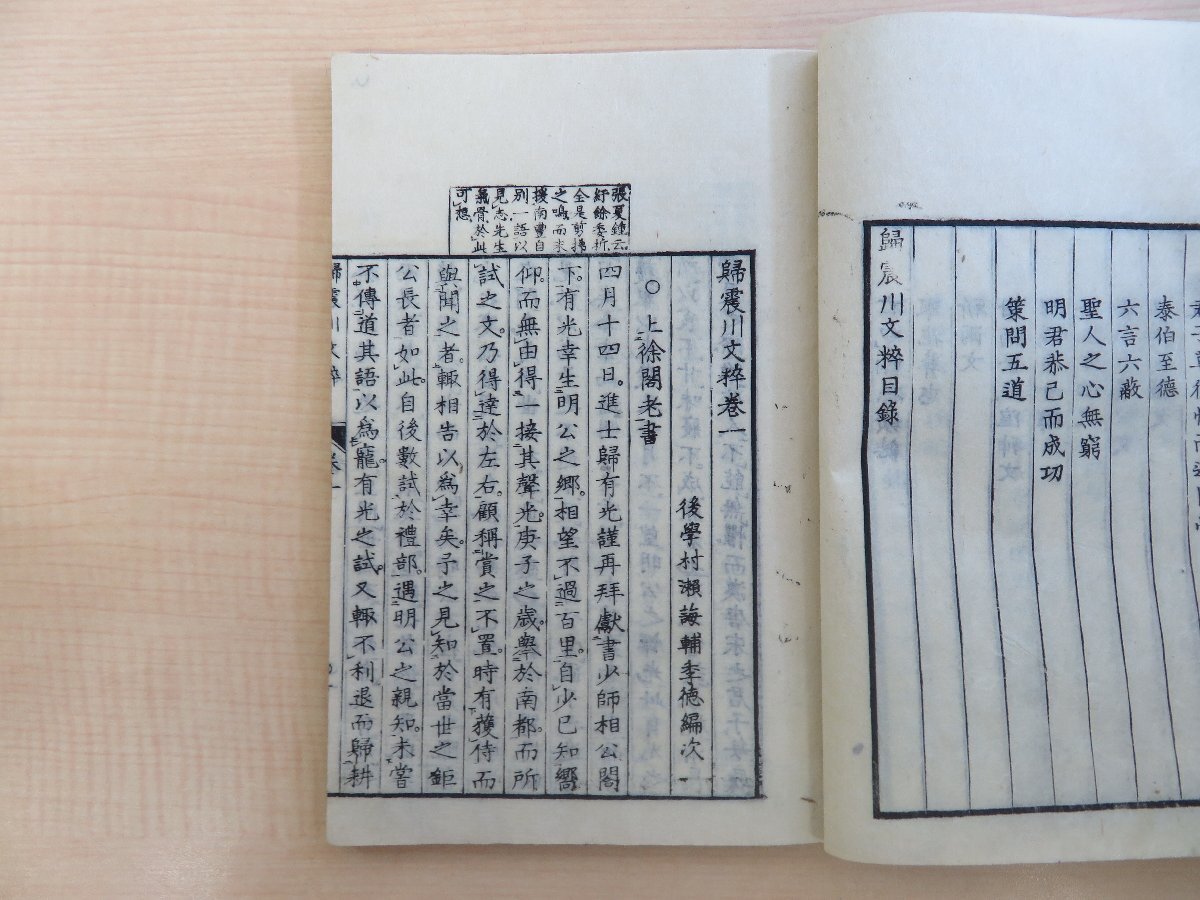 泰伯至德
六言六蔽
聖人之心無窮
明君恭己而成功
策問五道
歸震川文粹目錄
張夏鍾云
紆餘委折
全是剪拂
之鳴而來
援南豐自
別一語以
見志先生
氣骨於此
可想
歸震川文粹卷一
後學村瀨誨輔季德編次
○上徐閣老書
四月十四日。進士歸有光謹再拜獻書少師相公閣
下。有光幸生明公之鄉。相望不過百里。自少已知嚮
仰。而無由得一接其聲光。庚子之歲。舉於南都。而所
試之文。乃得達於左右。顧稱賞之不置。時有獲侍而
與聞之者。輒相告以為幸矣。予之見知於當世之鉅
公長者如此。自後數試於禮部。遇明公之親知。未嘗
不傳道其語以為寵。有光之試。又輒不利退而歸耕
歸震川文粹 卷一